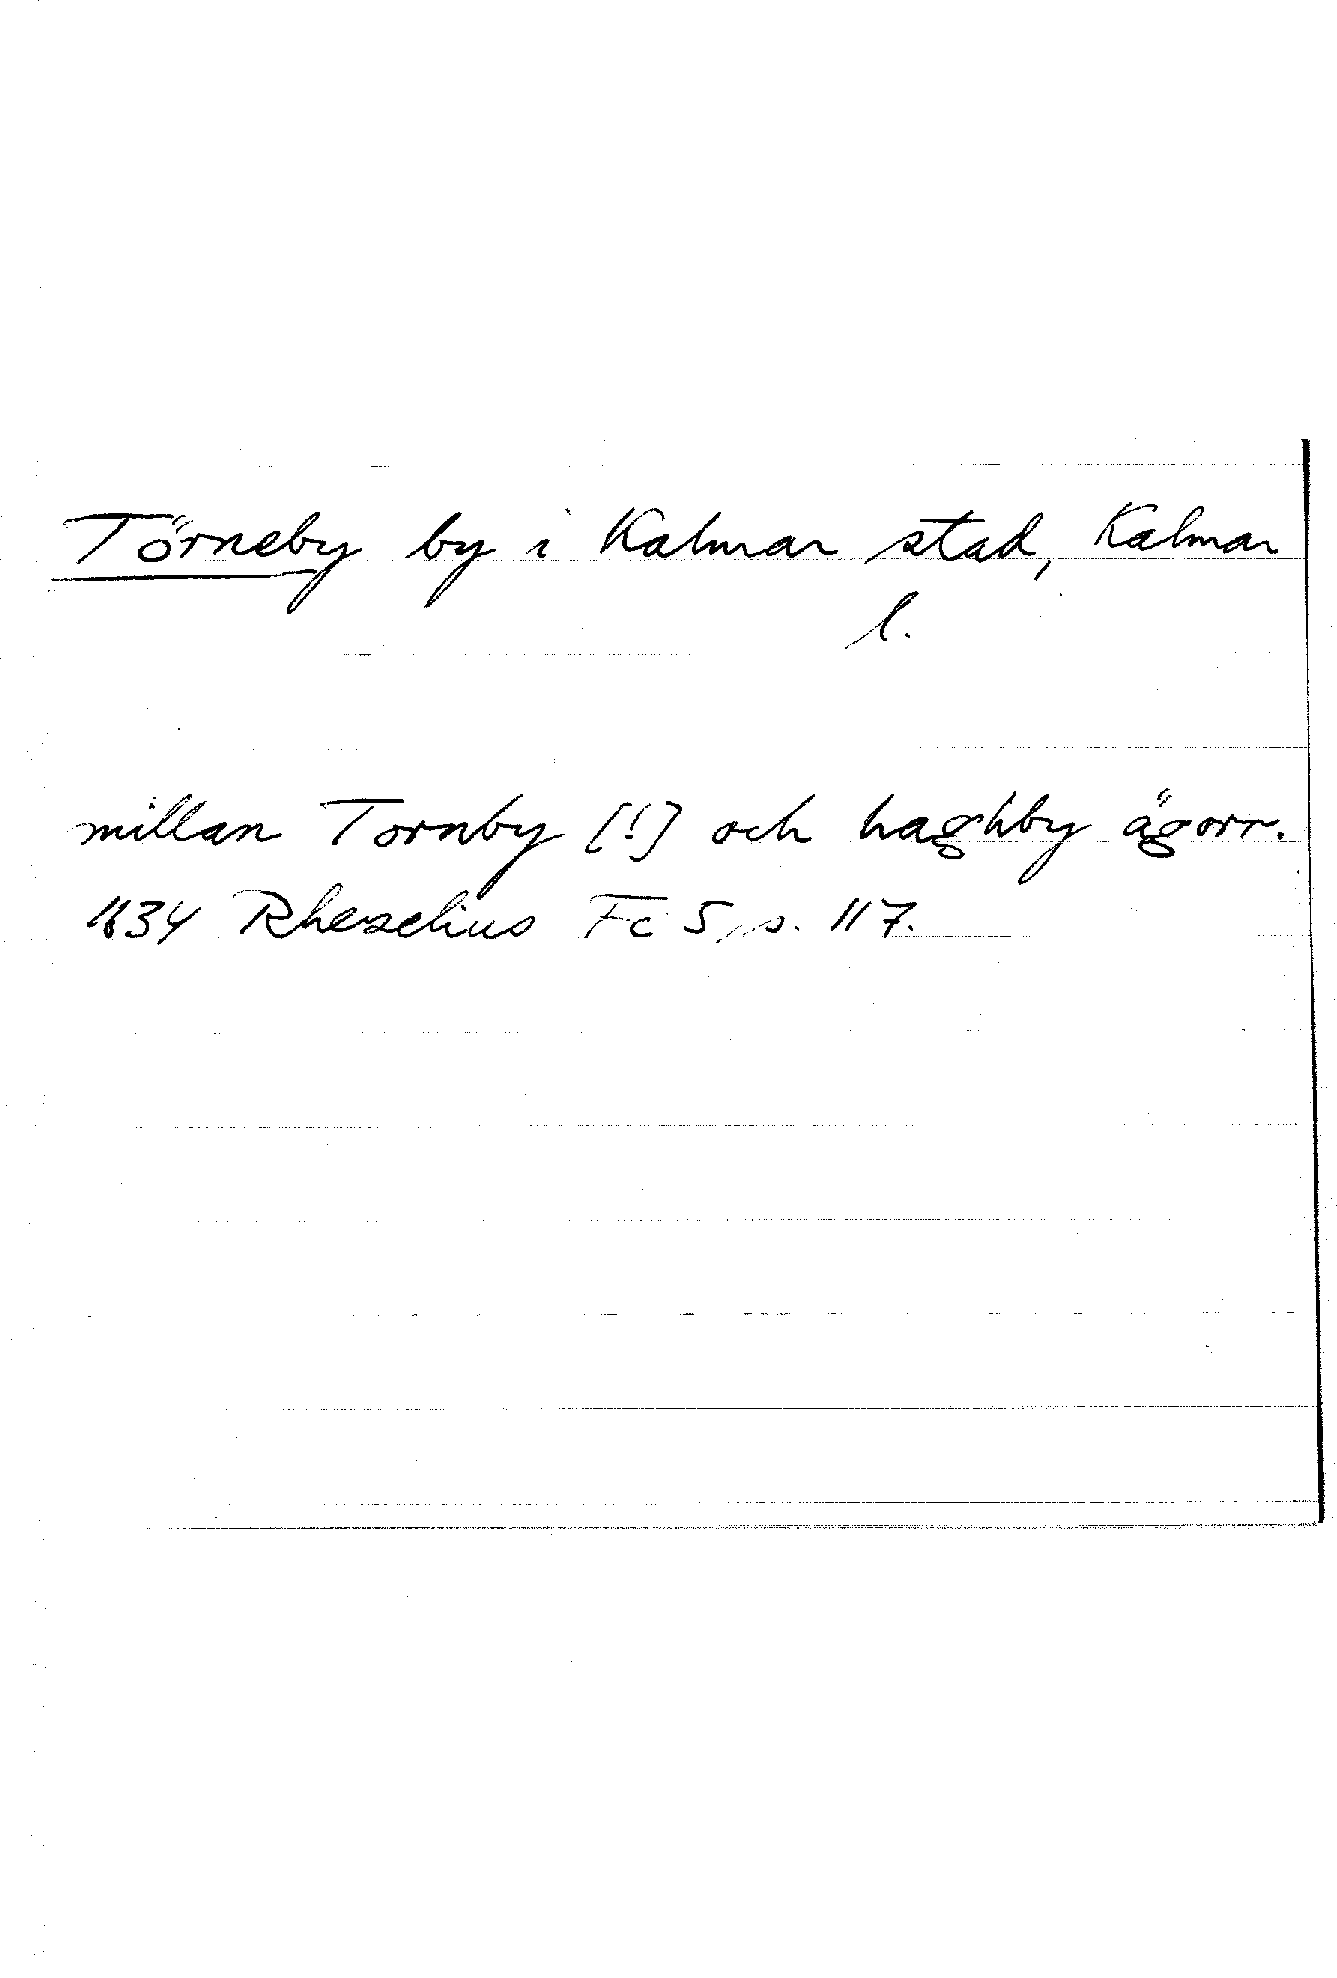 Törneby by i Kalmar stad, Kalmar
l.
millan Tornby [!] och haghby ägorr.
1634 Rhezelius Fc 5, s. 117.